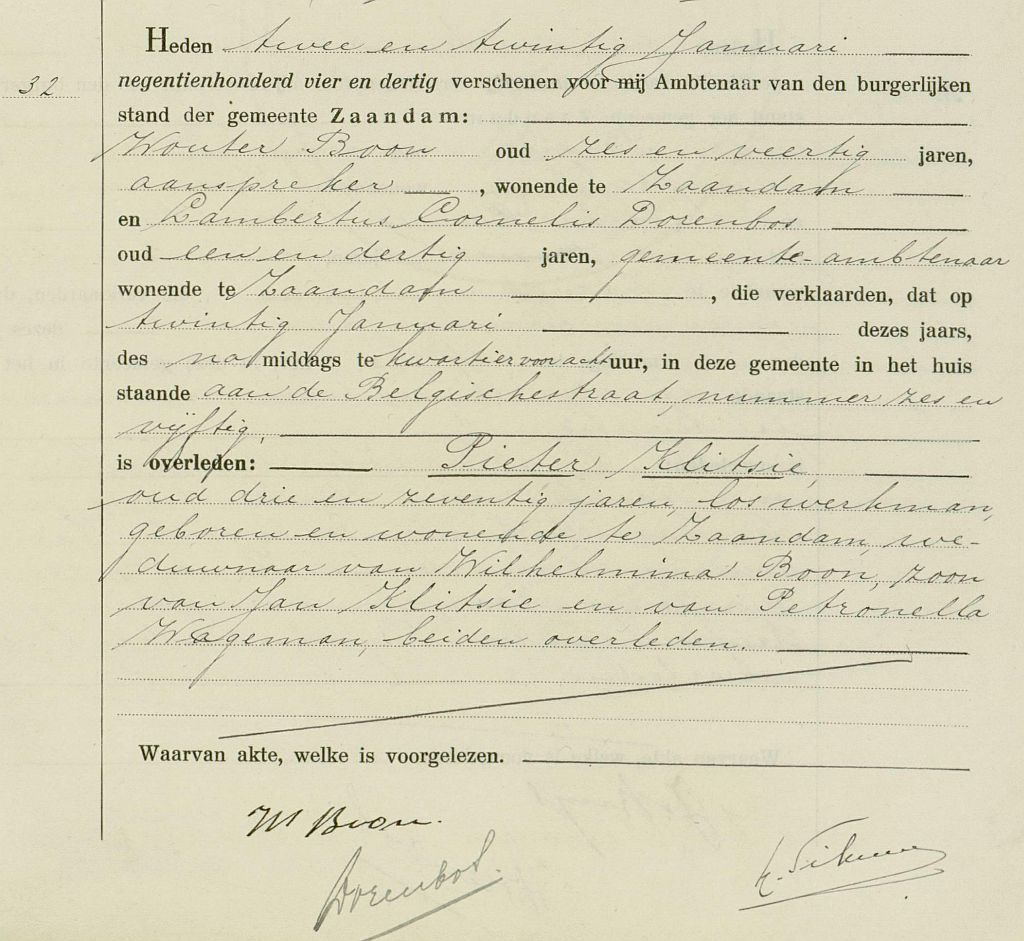 Heden twee en twintig Januari
32
negentienhonderd vier en dertig verschenen voor mij Ambtenaar van den burgerlijken
stand der gemeente Zaandam:
Wouter Boon oud zes en veertig jaren,
aanspreker, wonende te Zaandam
en Lambertus Cornelis Dorenbos
oud een en dertig jaren, gemeente-ambtenaar
wonende te Zaandam, die verklaarden, dat op
twintig Januari dezes jaars,
des na middags te kwartier voor acht uur, in deze gemeente in het huis
staande aan de Belgischestraat, nummer zes en
vijftig,
is overleden: Pieter Klitsie,
oud drie en zeventig jaren, los werkman,
geboren en wonende te Zaandam, we-
duwnaar van Wilhelmina Boon, zoon
van Jan Klitsie en van Petronella
Wageman, beiden overleden.
Waarvan akte, welke is voorgelezen.
W Boon.
Dorenbos.